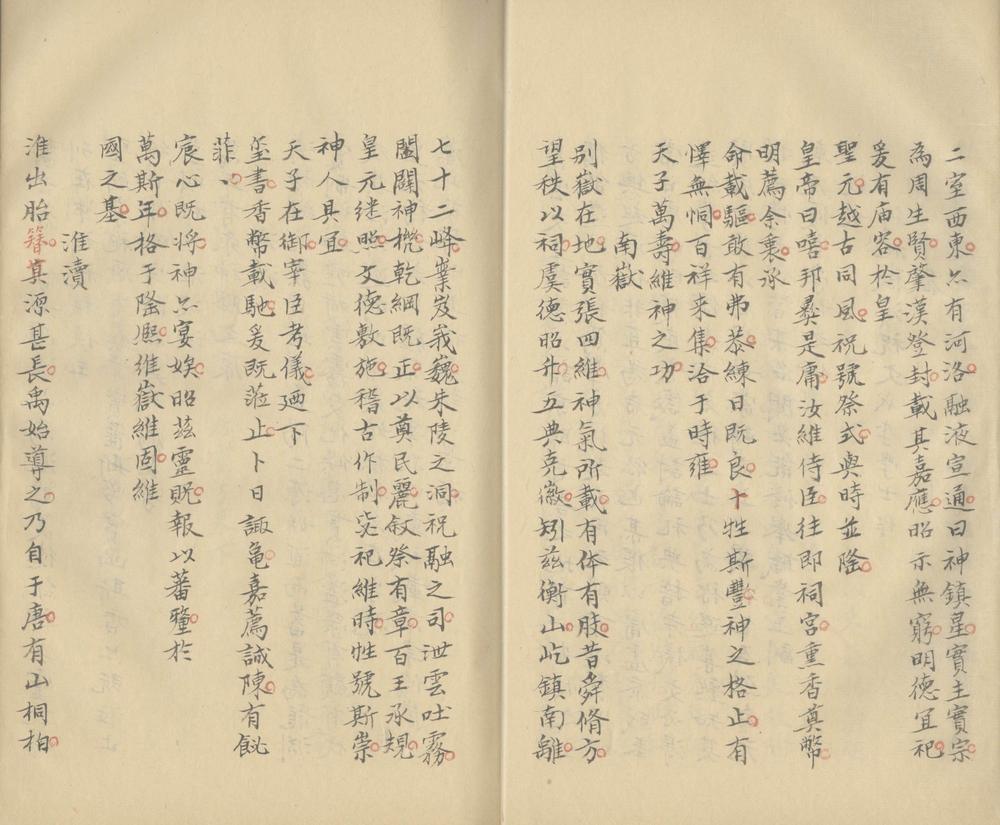 二室西東亦有河洛融液宣通曰神鎮星實主實宗
為周生賢肇漢登封載其嘉應昭示無窮明德宜祀
爰有庙容於皇
聖元越古同風祝號祭式與時並隆
皇帝曰嘻邦彞是庸汝維侍臣往即祠宫熏香奠幣
明薦余衷承
命載驅敢有弗恭練日既良卜牲斯豐神之格止有
懌無恫百祥来集洽于時雍
天子萬壽維神之功
南嶽
別嶽在地實張四維神氣所載有体有肢昔舜脩方
望秩以祠虞德昭升五典克徽矧兹衡山屹鎮南離
七十二峰業岌峩巍朱陵之洞祝融之司泄雲吐霧
闔闢神機乾綱既正以奠民麗叙祭有章百王承規
皇元継照文德敷施稽古作制宓祀維時牲號斯崇
神人具宜
天子在御宰臣考儀廼下
璽書香幣載馳爰既蒞止卜日諏龜嘉薦誠陳有飶
菲、
宸心既将神亦宴娭昭兹靈貺報以蕃釐於
萬斯年格于隆熈維嶽維固維
國之基
淮瀆
淮出胎簪其源甚長禹始導之乃自于唐有山桐柏